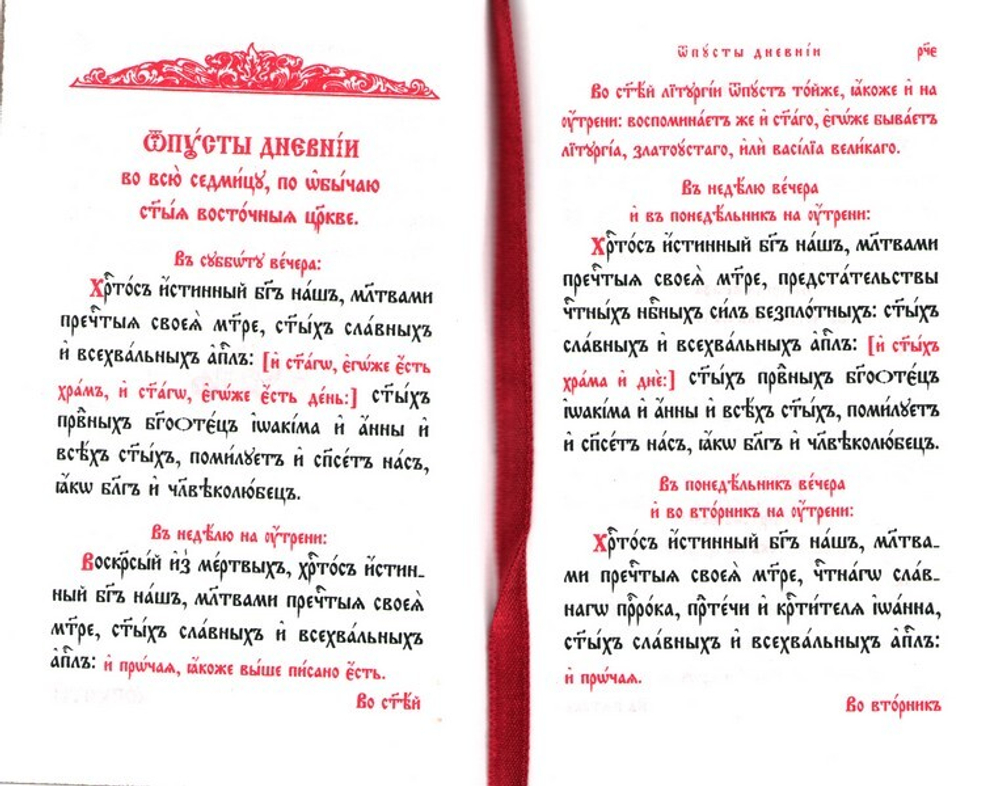 Ѿпꙋ́сты дневні́и
во всю̀ седми́цꙋ, по ѡ҆бы́чаю
ст҃ы́ѧ восто́чныѧ цр҃кве.
Въ сꙋббѡ́тꙋ ве́чера:
Хрⷭ҇то́съ и҆́стинный бг҃ъ на́шъ, мл҃твами
пречⷭ҇тыѧ своеѧ̀ мт҃ре, ст҃ы́хъ сла́вныхъ
и҆ всехва́льныхъ а҆пⷭ҇лъ: [и҆ ст҃а́гѡ, є҆гѡ́же є҆́сть
хра́мъ, и҆ ст҃а́гѡ, є҆гѡ́же є҆́сть де́нь:] ст҃ы́хъ
првⷣныхъ бг҃оѻтє́цъ і҆ѡакі́ма и҆ а҆́нны и҆
всѣ́хъ ст҃ы́хъ, поми́лꙋетъ и҆ сп҃се́тъ на́съ,
ꙗ҆́кѡ бл҃гъ и҆ чл҃вѣколю́бецъ.
Въ недѣ́лю на оу҆́трени:
Воскр҃сы́й и҆з̾ ме́ртвыхъ, хрⷭ҇то́съ и҆́стин_
ный бг҃ъ на́шъ, мл҃твами пречⷭ҇тыѧ своеѧ̀
мт҃ре, ст҃ы́хъ сла́вныхъ и҆ всехва́льныхъ
а҆пⷭ҇лъ: и҆ прѡ́чаѧ, ꙗ҆́коже вы́ше пи́сано є҆́сть.
Во ст҃ѣ́й
ѿпꙋсты дневні́и рч҃є
Во ст҃ѣ́й лїтꙋргі́и ѿпꙋ́стъ то́йже, ꙗ҆́коже и҆ на
оу҆́трени: воспомина́етъ же и҆ ст҃а́го, є҆гѡ́же быва́етъ
лїтꙋргі́а, златоꙋ́стаго, и҆лѝ васі́лїа вели́каго.
Въ недѣ́лю ве́чера
и҆ въ понедѣ́льникъ на оу҆́трени:
Хрⷭ҇то́съ и҆́стинный бг҃ъ на́шъ, мл҃твами
пречⷭ҇тыѧ своеѧ̀ мт҃ре, предста́тельствы
чⷭ҇тны́хъ нбⷭ҇ныхъ си́лъ безпло́тныхъ: ст҃ы́хъ
сла́вныхъ и҆ всехва́льныхъ а҆пⷭ҇лъ: [и҆ ст҃ы́хъ
хра́ма и҆ днѐ:] ст҃ы́хъ првⷣныхъ бг҃оѻтє́цъ
і҆ѡакі́ма и҆ а҆́нны и҆ всѣ́хъ ст҃ы́хъ, поми́лꙋетъ
и҆ сп҃се́тъ на́съ, ꙗ҆́кѡ бл҃гъ и҆ чл҃вѣколю́бецъ.
Въ понедѣ́льникъ ве́чера
и҆ во вто́рникъ на оу҆́трени:
Хрⷭ҇то́съ и҆́стинный бг҃ъ на́шъ, мл҃тва_
ми пречⷭ҇тыѧ своеѧ̀ мт҃ре, чⷭ҇тна́гѡ сла́в_
нагѡ прⷪ҇ро́ка, прⷣте́чи и҆ крⷭ҇ти́телѧ і҆ѡа́нна,
ст҃ы́хъ сла́вныхъ и҆ всехва́льныхъ а҆пⷭ҇лъ:
и҆ прѡ́чаѧ.
Во вто́рникъ